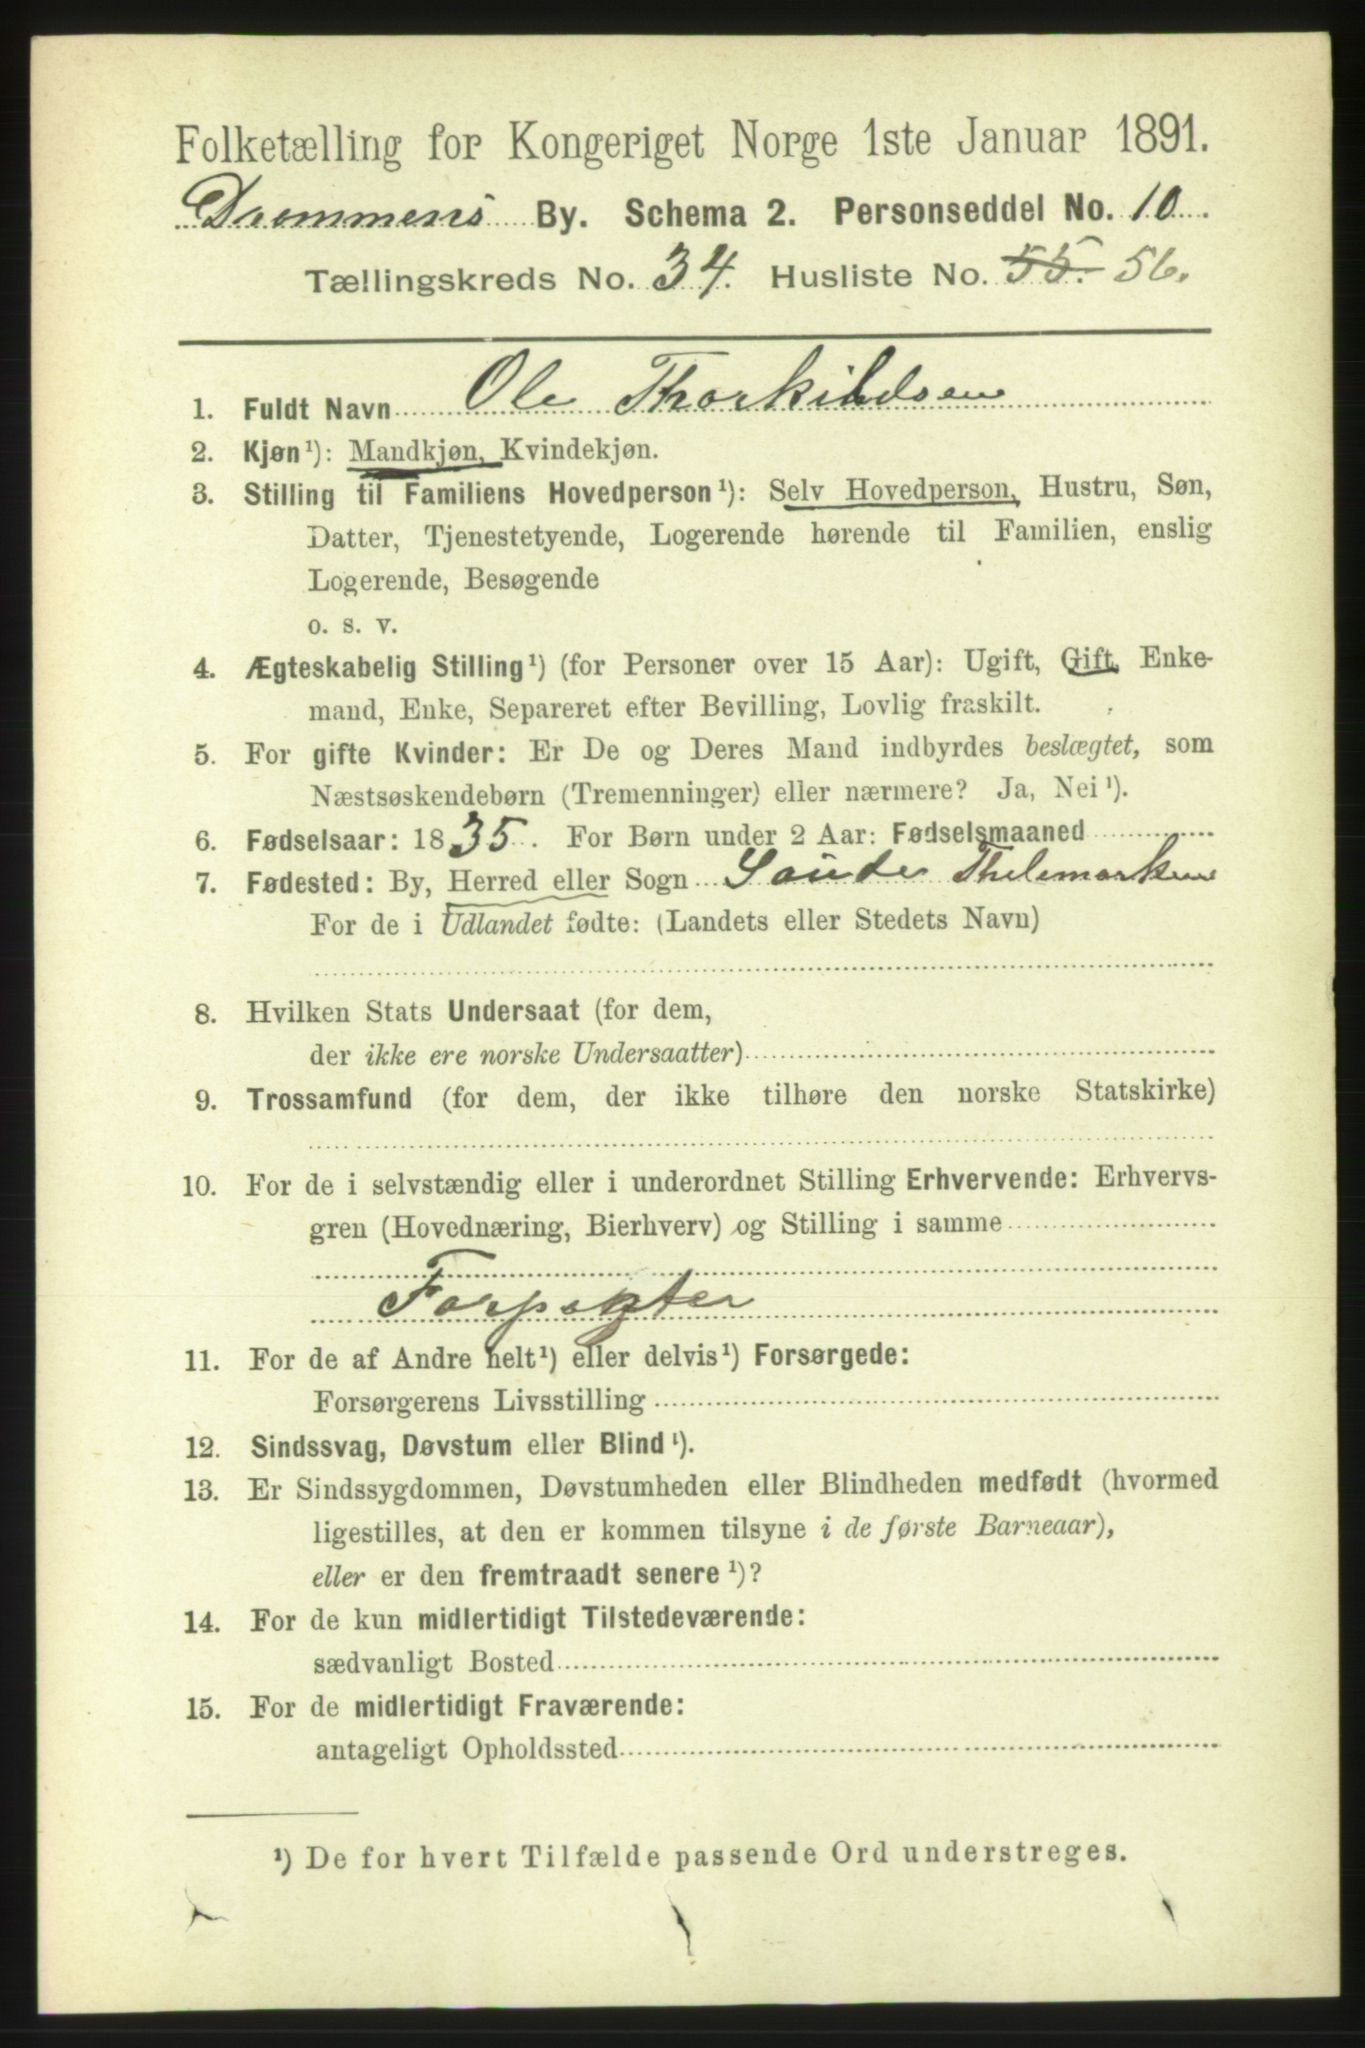 Folketælling for Kongeriget Norge 1ste Januar 1891.
Drammens By. Schema 2. Personseddel No. 10.
Tællingskreds No. 34. Husliste No. 55. 56.
1. Fuldt Navn Ole Thorkildsen
2. Kjøn¹): Mandkjøn, Kvindekjøn.
3. Stilling til Familiens Hovedperson¹): Selv Hovedperson, Hustru, Søn,
Datter, Tjenestetyende, Logerende hørende til Familien, enslig
Logerende, Besøgende
o. s. v.
4. Ægteskabelig Stilling¹) (for Personer over 15 Aar): Ugift, Gift, Enke-
mand, Enke, Separeret efter Bevilling, Lovlig fraskilt.
5. For gifte Kvinder: Er De og Deres Mand indbyrdes beslægtet, som
Næstsøskendebørn (Tremenninger) eller nærmere? Ja, Nei¹).
6. Fødselsaar: 1835. For Børn under 2 Aar: Fødselsmaaned
7. Fødested: By, Herred eller Sogn Saude Thelemarken
For de i Udlandet fødte: (Landets eller Stedets Navn)
8. Hvilken Stats Undersaat (for dem,
der ikke ere norske Undersaatter)
9. Trossamfund (for dem, der ikke tilhøre den norske Statskirke)
10. For de i selvstændig eller i underordnet Stilling Erhvervende: Erhvervs-
gren (Hovednæring, Bierhverv) og Stilling i samme
Forpagter
11. For de af Andre helt¹) eller delvis¹) Forsørgede:
Forsørgerens Livsstilling
12. Sindssvag, Døvstum eller Blind¹).
13. Er Sindssygdommen, Døvstumheden eller Blindheden medfødt (hvormed
ligestilles, at den er kommen tilsyne i de første Barneaar),
eller er den fremtraadt senere¹)?
14. For de kun midlertidigt Tilstedeværende:
sædvanligt Bosted
15. For de midlertidigt Fraværende:
antageligt Opholdssted
¹) De for hvert Tilfælde passende Ord understreges.